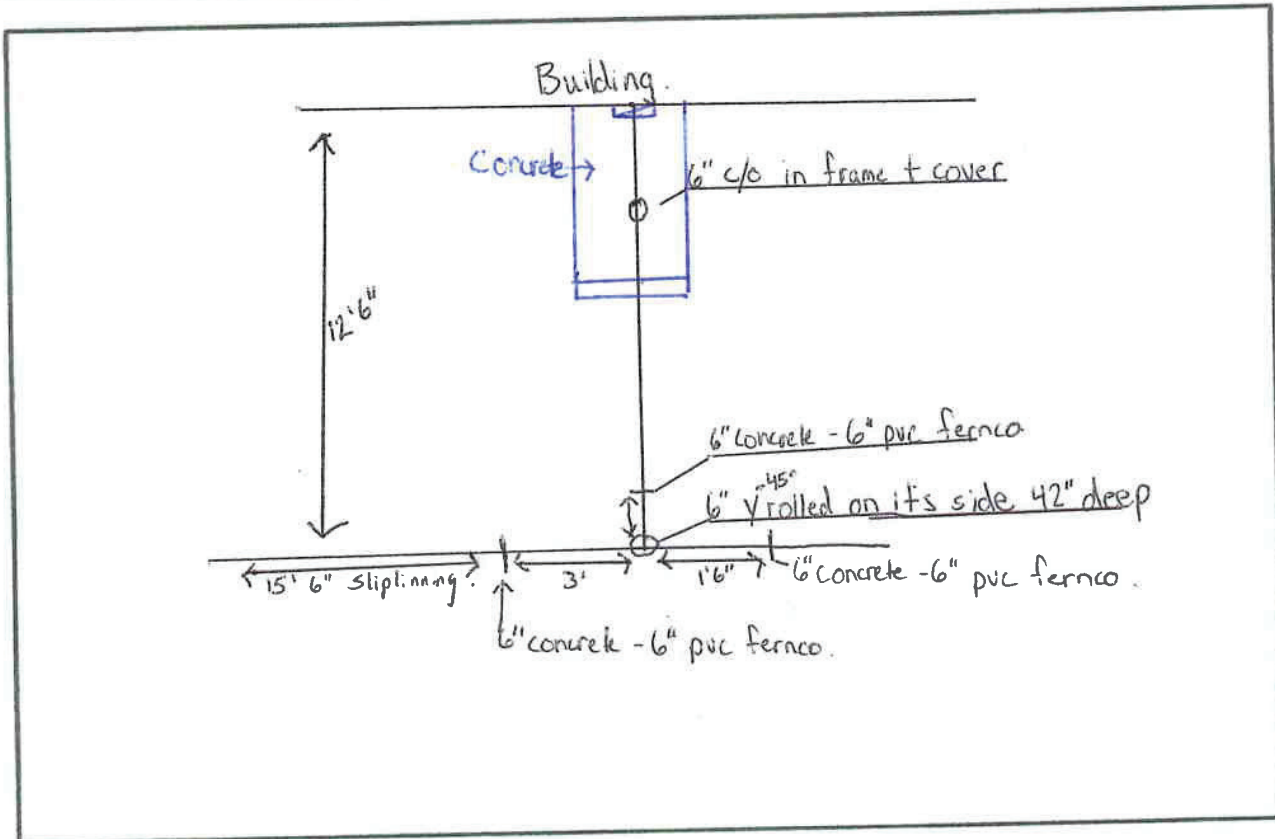 Building.
Concrete→
6" c/o in frame + cover
12'6"
6" concrete - 6" pvc fernco
-45°
6" Y rolled on it's side 42" deep
15' 6" Sliplinning.
3'
1'6"
6" concrete - 6" pvc fernco.
6" concrete - 6" pvc fernco.